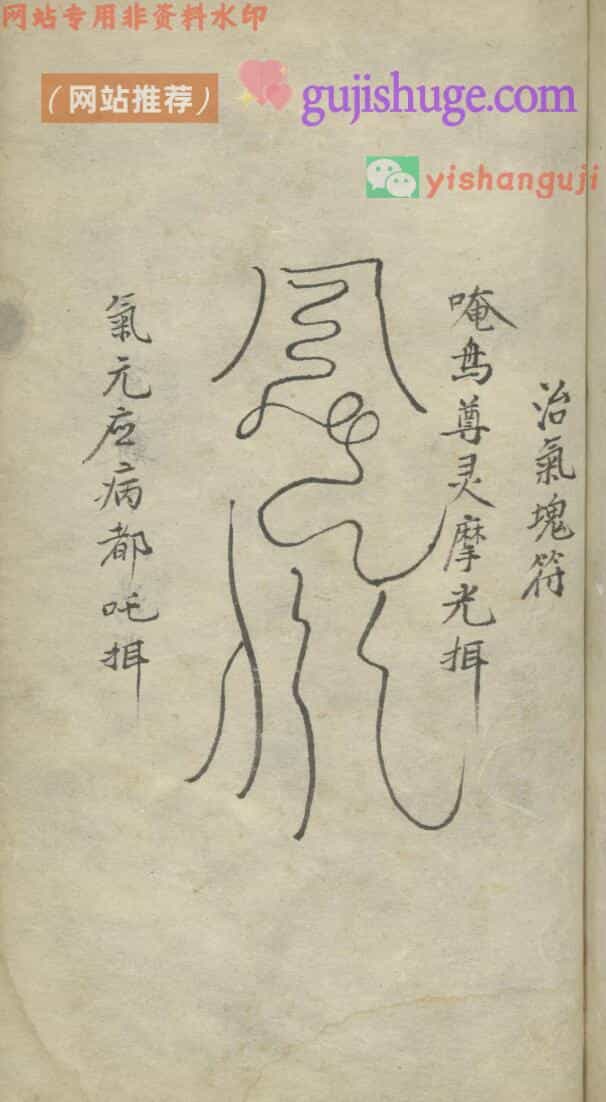 网站专用非资料水印
（网站推荐）
gujishuge.com
yishanguji
治氣塊符
唵𠃵尊灵摩光挕
氣元应病都吒挕